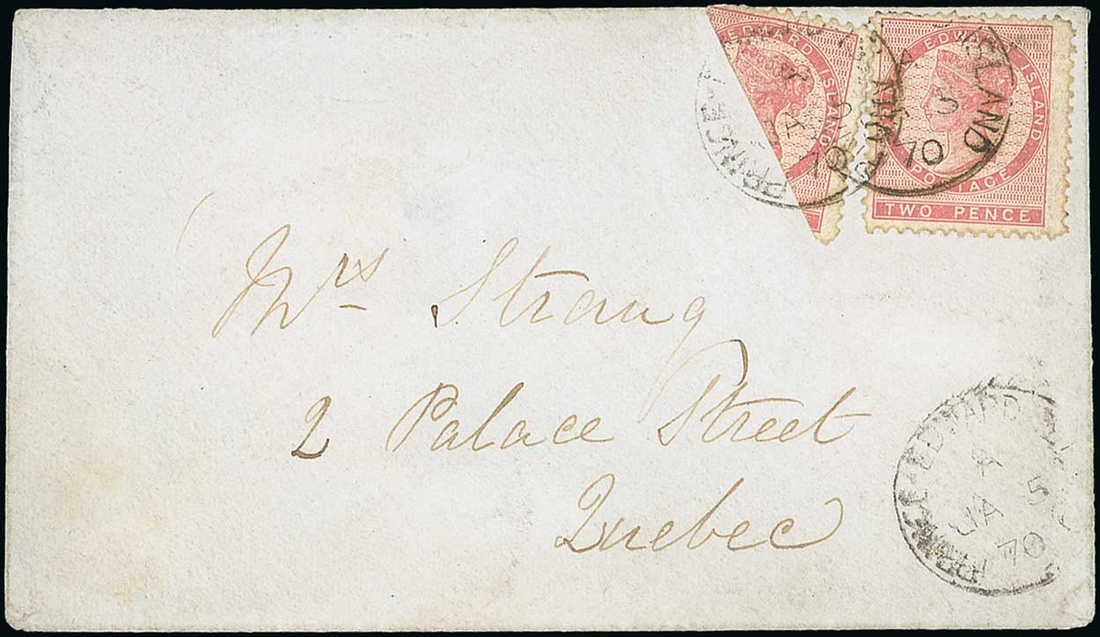 EDWARD ISLAND
EDWARD ISLAND
POSTAGE
TWO PENCE
PRINCE
70
ISLAND
70
Mrs Strang
2 Palace Street
Quebec
PRINCE EDWARD
A
JA 5
70